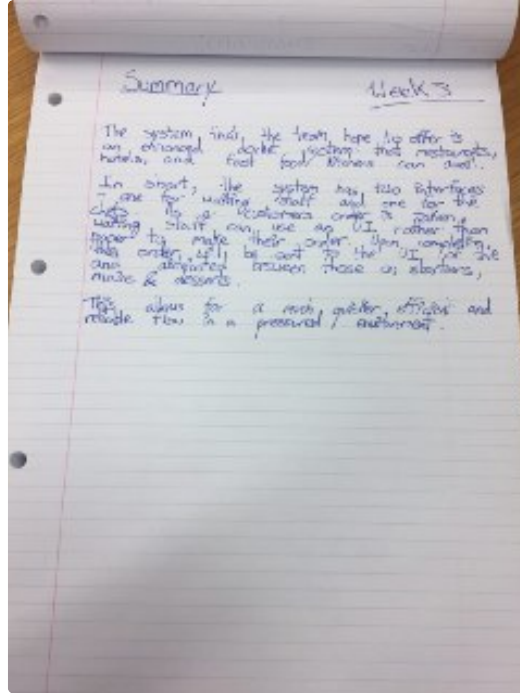 Summary Week 3
The system that the team hope to offer is
an enhanced docket system that restaurants,
hotels, and fast food kitchens can avail.
In short, the system has two interfaces
- one for waiting staff and one for the
chefs. As a customers order is taken,
waiting staff can use an UI, rather than
paper to make their order. Upon completion,
this order will be sent to the UI for the
and between those on starters,
mains & desserts.
This allows for a much quicker, efficient and
reliable flow in a pressured environment.